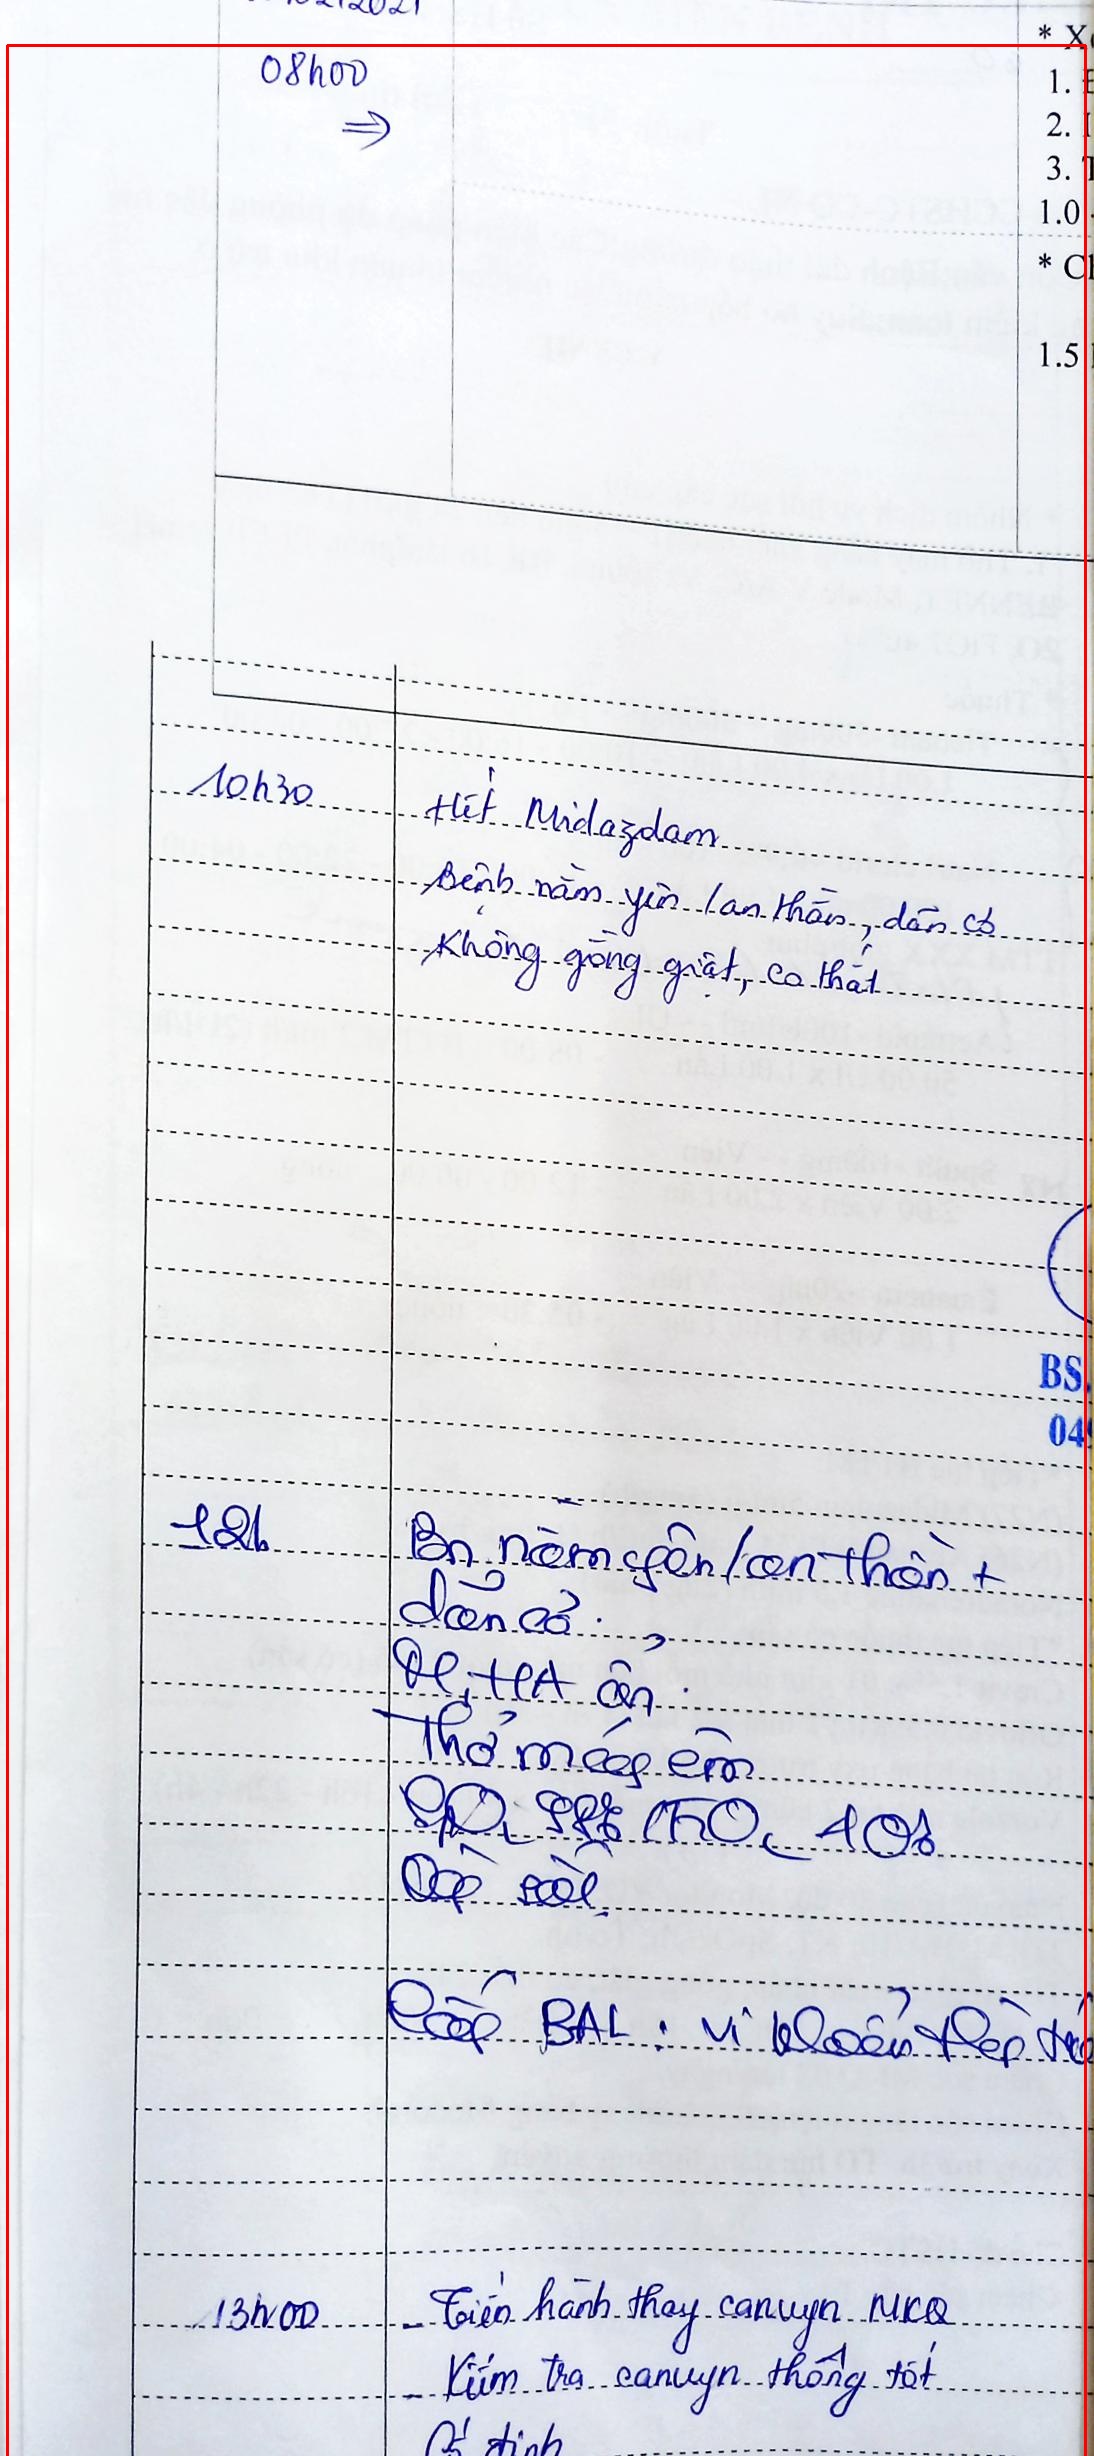 08h00
⇒
* X
1.
2.
3.
1.0
* Ch
1.5
10h30
Hết Midazolam
Bệnh nằm yên / an thần, dãn cơ
Không gồng giật, co thắt
BS.
04
12h
Bn nằm yên / an thần +
dãn cơ.
M, HA ổn.
Thở máy êm
SpO2 98% / FiO2 40%
Cấy BAL: vi khuẩn
13h00
- Tiến hành thay canuyn MKQ
- Kiểm tra canuyn thông tốt
Cố định